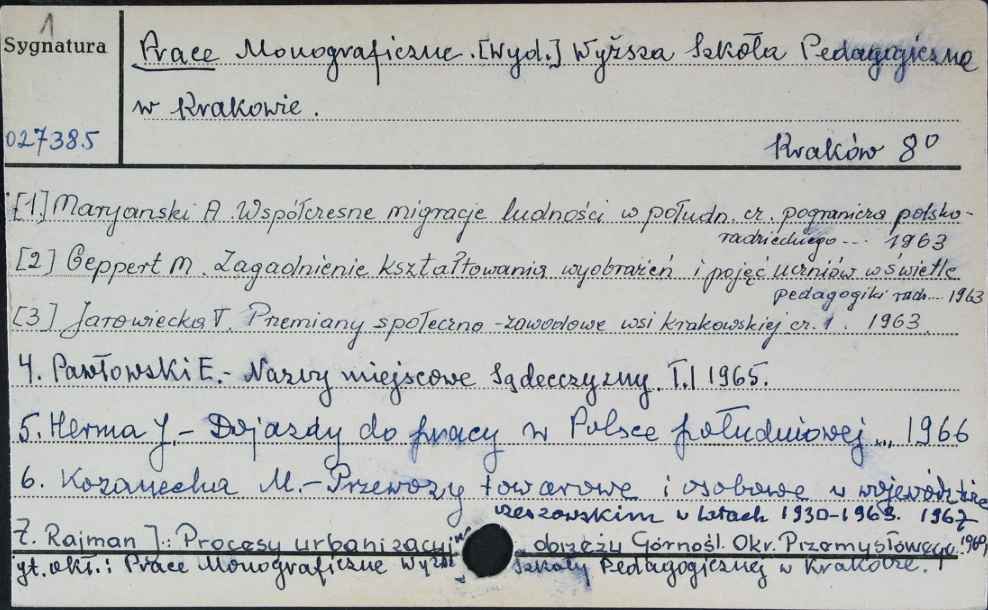 1
Sygnatura
Prace Monograficzne. [Wyd.] Wyższa Szkoła Pedagogiczna
w Krakowie.
027385
Kraków 8°
[1] Maryanski A. Współczesne migracje ludności w połudn. cz. pogranicza polsko-
radzieckiego ... 1963
[2] Geppert M. Zagadnienie kształtowania wyobrażeń i pojęć uczniów w świetle
pedagogiki radz... 1963
[3] Jarowiecka T. Przemiany społeczno-zawodowe wsi krakowskiej cz. 1. 1963.
4. Pawłowski E.- Nazwy miejscowe Sądecczyzny. T.I 1965.
5. Herma J.- Dojazdy do pracy w Polsce południowej ... 1966
6. Kozanecka M.- Przewozy towarowe i osobowe w województwie
rzeszowskim w latach 1930-1963. 1967
7. Rajman J.: Procesy urbanizacyjne obrzeży Górnośl. Okr. Przemysłowego. 1969,
yt. okł.: Prace Monograficzne Wyższ Szkoły Pedagogicznej w Krakowie.